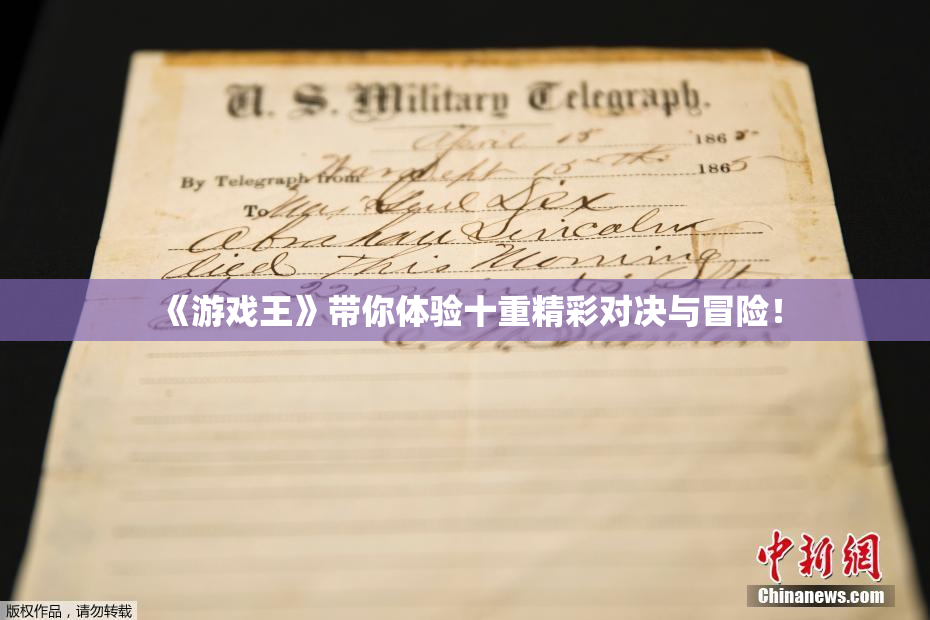 U. S. Military Telegraph.
April 15 1865
By Telegraph from War Dept 15th 1865
To Maj Genl Dix
Abraham Lincoln
died This Morning
at 22 minutes after
《游戏王》带你体验十重精彩对决与冒险！
E. M. Stanton
中新网
Chinanews.com
版权作品，请勿转载